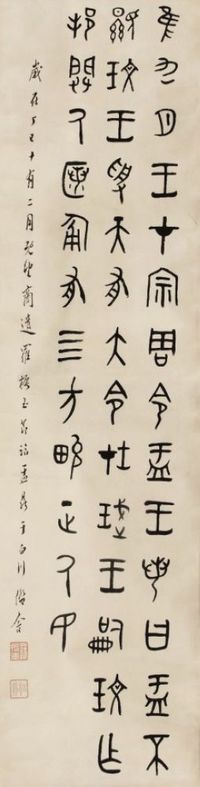 隹九月王才宗周令盂王若曰盂不
顯玟王受天有大令在珷王嗣玟乍
邦闢氒匿匍有四方畯正氒民
歲在丁巳十有二月商遺羅振玉節臨盂鼎于白川僑舍